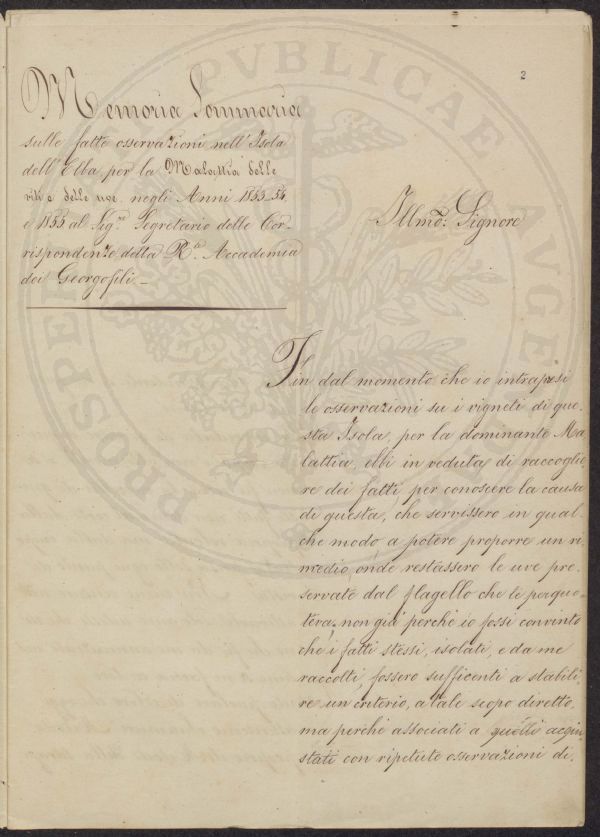 2
Memoria Sommaria
sulle fatte osservazioni nell'Isola
dell'Elba per la Malattia delle
viti e delle uve negli Anni 1853.54.
e 1855 al Sigre Segretario delle Cor-
rispondenze della Rle Accademia
dei Georgofili.-
Illmo: Signore
Fin dal momento che io intrapresi
le osservazioni su i vigneti di que-
sta Isola, per la dominante Ma
lattia, ebbi in veduta di raccoglie
re dei fatti per conoscere la causa
di questa, che servissero in qual-
che modo a potere proporre un ri-
medio, onde restassero le uve pre-
servate dal flagello che le perquo-
teva; non già perchè io fossi convinto
che i fatti stessi, isolati, e da me
raccolti, fossero sufficenti a stabili-
re un criterio, a tale scopo diretto,
ma perchè associati a quelli acqui-
stati con ripetute osservazioni di.
PROSPERITATI PUBLICAE AUGENDAE